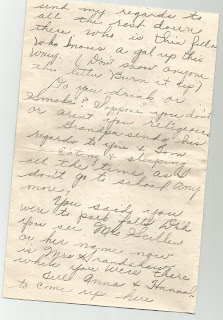 send my regards to
all the rest down
there Who is this fella
who knows a gal up this
way. (Don't show anyone
this letter Burn it up)
Do you drink or
smoke? Suppose you don't
or arent you 16
Grandpa sends his
regards to you & Tom
Eating & sleeping
all the time as I
don't go to school any
more.
You said you
were to park falls Did
you see Mrs
or her name now
is Mrs
when you were there
Tell Anna &
to come up here